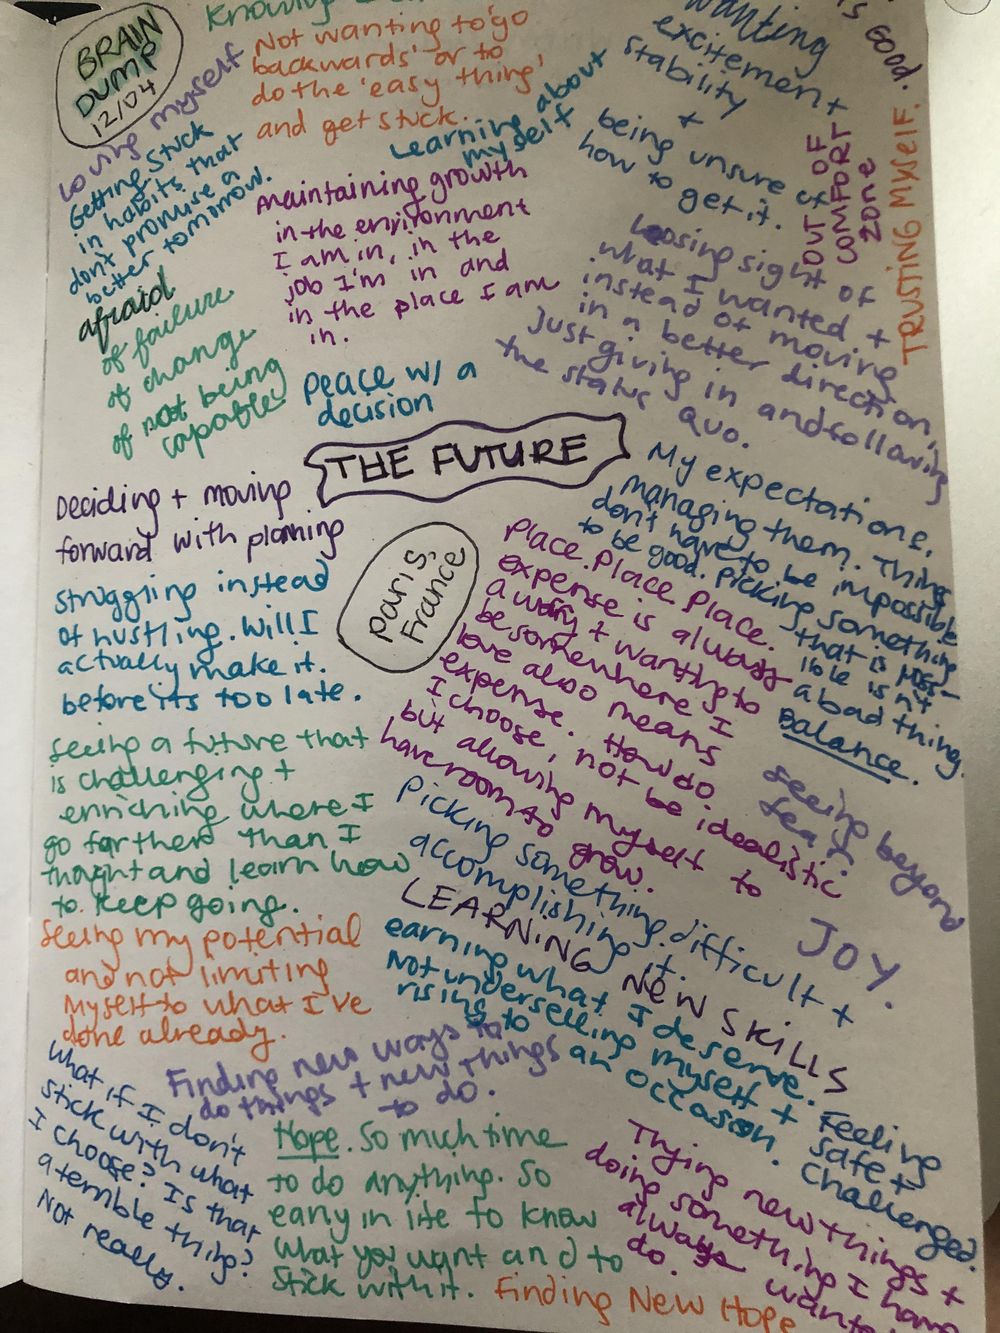 BRAIN
DUMP
12/04
Not wanting to 'go
backwards' or to
do the 'easy thing'
and get stuck.
Loving myself
Getting stuck
in habits that
don't promise a
better tomorrow.
Learning about
myself
wanting
excitement
stability
+
being unsure of
how to get it.
GOOD.
OUT OF
COMFORT
ZONE
TRUSTING MYSELF.
maintaining growth
in the environment
I am in, in the
job I'm in and
in the place I am
in.
afraid
of failure
of change
of not being
capable
Loosing sight of
what I wanted +
instead of moving
in a better direction,
Just giving in and following
the status quo.
peace w/ a
decision
THE FUTURE
Deciding + moving
forward with planning
My expectations.
managing them. Things
don't have to be impossible
to be good. Picking something
that is poss-
ible isn't
a bad thing.
Balance.
paris,
France
Place. Place. Place.
expense is always
a worry + wanting to
be somewhere I
love also means
expense. How do
I choose, not be idealistic
but allowing myself to
have room to grow.
struggling instead
of hustling. Will I
actually make it.
before its too late.
seeing a future that
is challenging +
enriching where I
go farther than I
thought and learn how
to keep going.
seeing beyond
fear.
Picking something difficult +
accomplishing it.
JOY.
LEARNING NEW SKILLS
seeing my potential
and not limiting
myself to what I've
done already.
earning what I deserve.
Not underselling myself +
rising to an occasion.
Feeling
safe +
challenged.
Finding new ways to
do things + new things
to do.
What if I don't
stick with what
I choose? Is that
a terrible thing?
Not really.
Hope. So much time
to do anything. So
early in life to know
what you want and to
stick with it.
Trying new things +
doing something I have
always wanted
do.
Finding New Hope